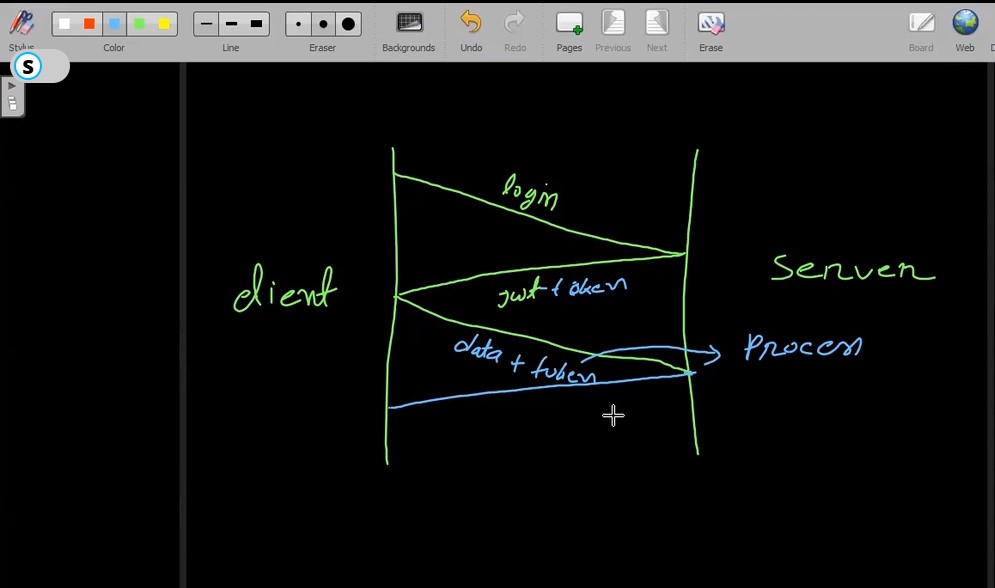 Stylus
Color
Line
Eraser
Backgrounds
Undo
Redo
Pages
Previous
Next
Erase
Board
Web
D
S
login
client
server
jwt token
data + token
Process